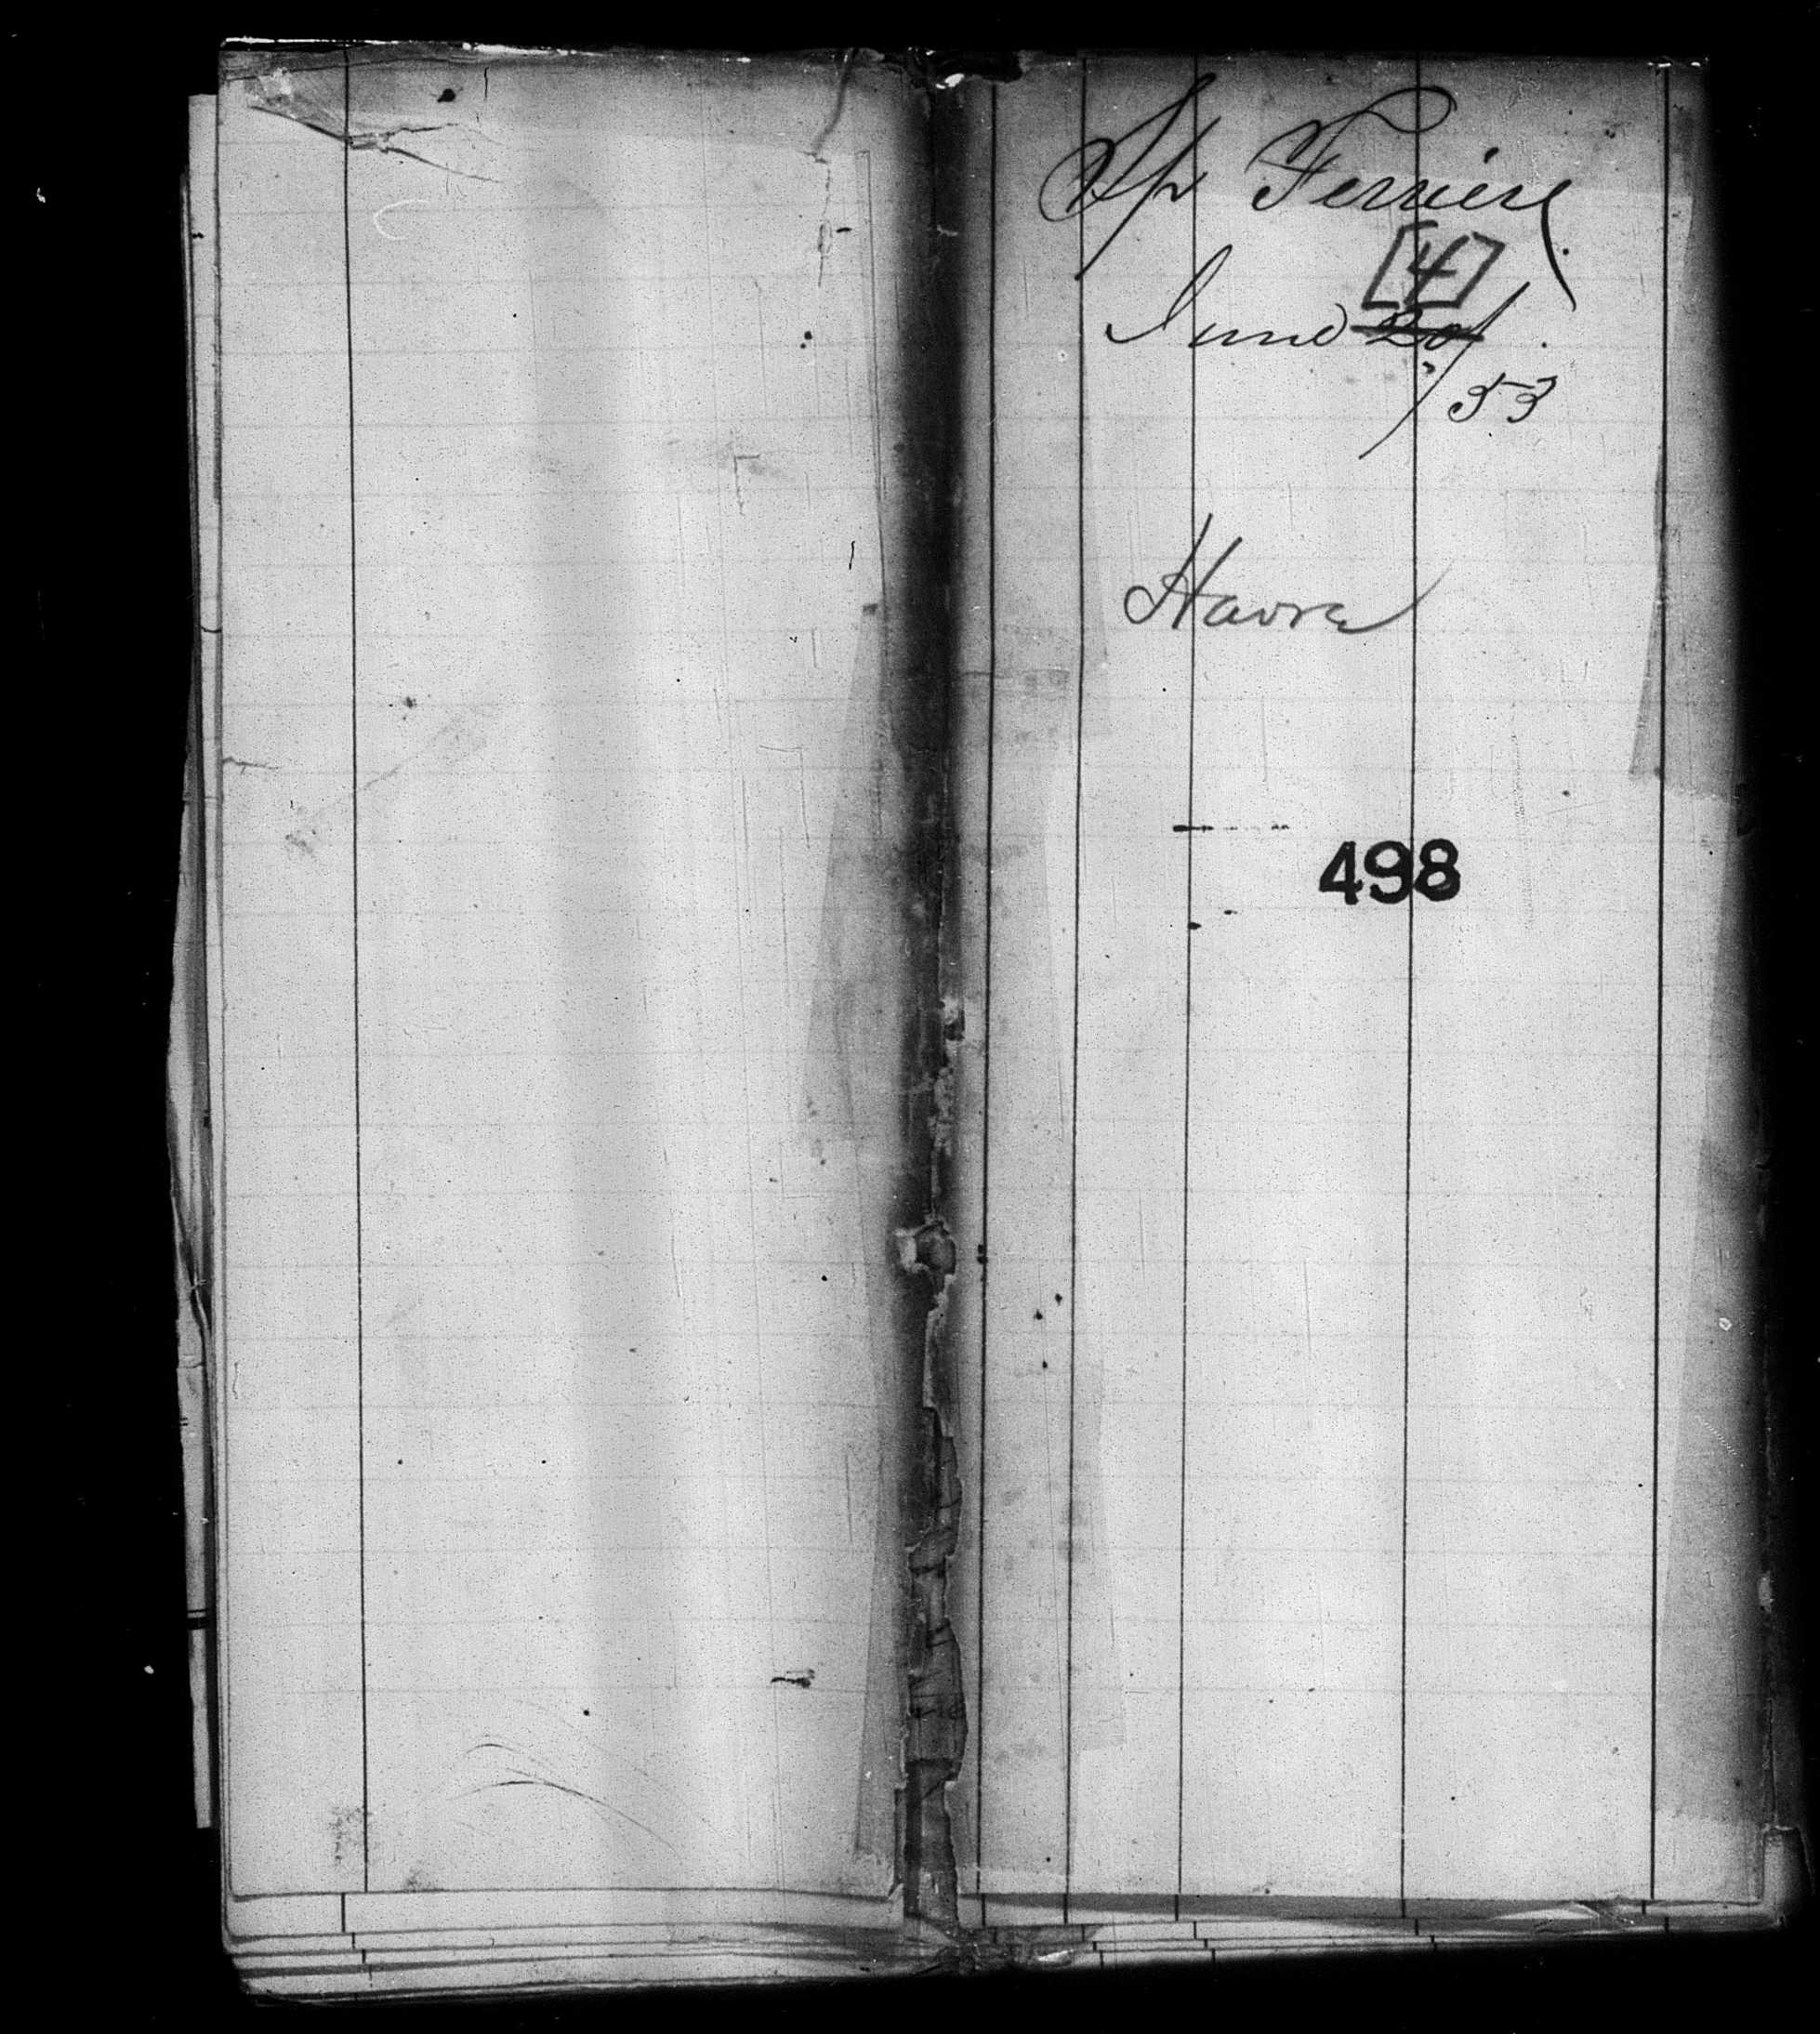 Sp Ferriere
[4]
June 20/
/53
Havre
498